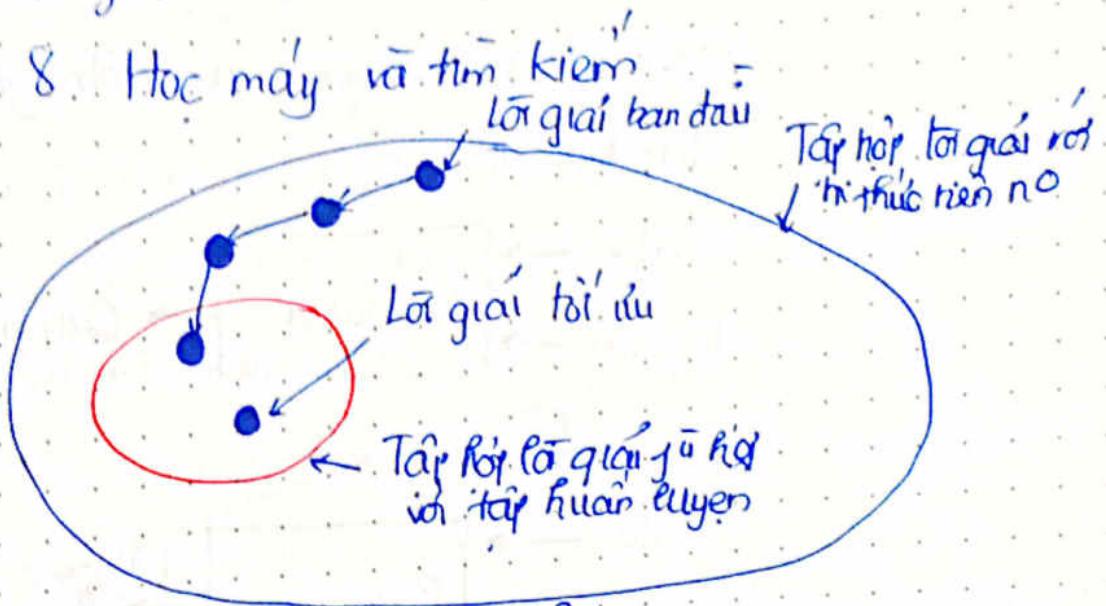 8. Học máy và tìm kiếm
Lời giải ban đầu
Tập hợp lời giải với
tri thức tiên nó
Lời giải tối ưu
Tập hợp lời giải phù hợp
với tập huấn luyện